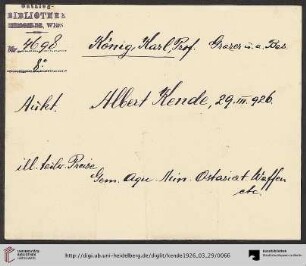 Katalog-
BIBLIOTHEK
WIEN
Nr. 4698
8°
König, Karl Prof. Grazer u. a. Bes.
Aukt. Albert Kende, 29. III. 926.
ill. teilw. Preise
Gem. Aqu. Min. Ostasiat Waffen
etc.
http://digi.ub.uni-heidelberg.de/diglit/kende1926_03_29/0066
UNIVERSITÄTS-
BIBLIOTHEK
HEIDELBERG